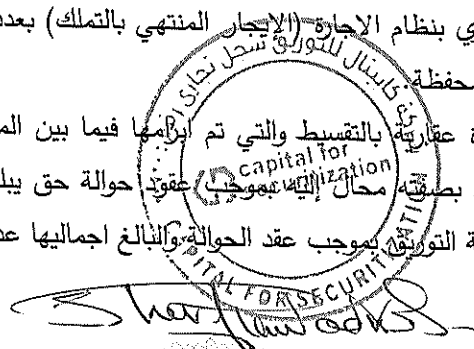 ي بنظام الاجارة (الإيجار المنتهي بالتملك) بعدد
حفظة
ة عقارية بالتقسيط والتي تم ابرامها فيما بين الم
بصفته محال إليه بموجب عقود حوالة حق يبل
ة التوريق بموجب عقد الحوالة والبالغ اجماليها عد
كابيتال للتوريق سجل تجارى
capital for
securitization
CAPITAL FOR SECURITIZATION